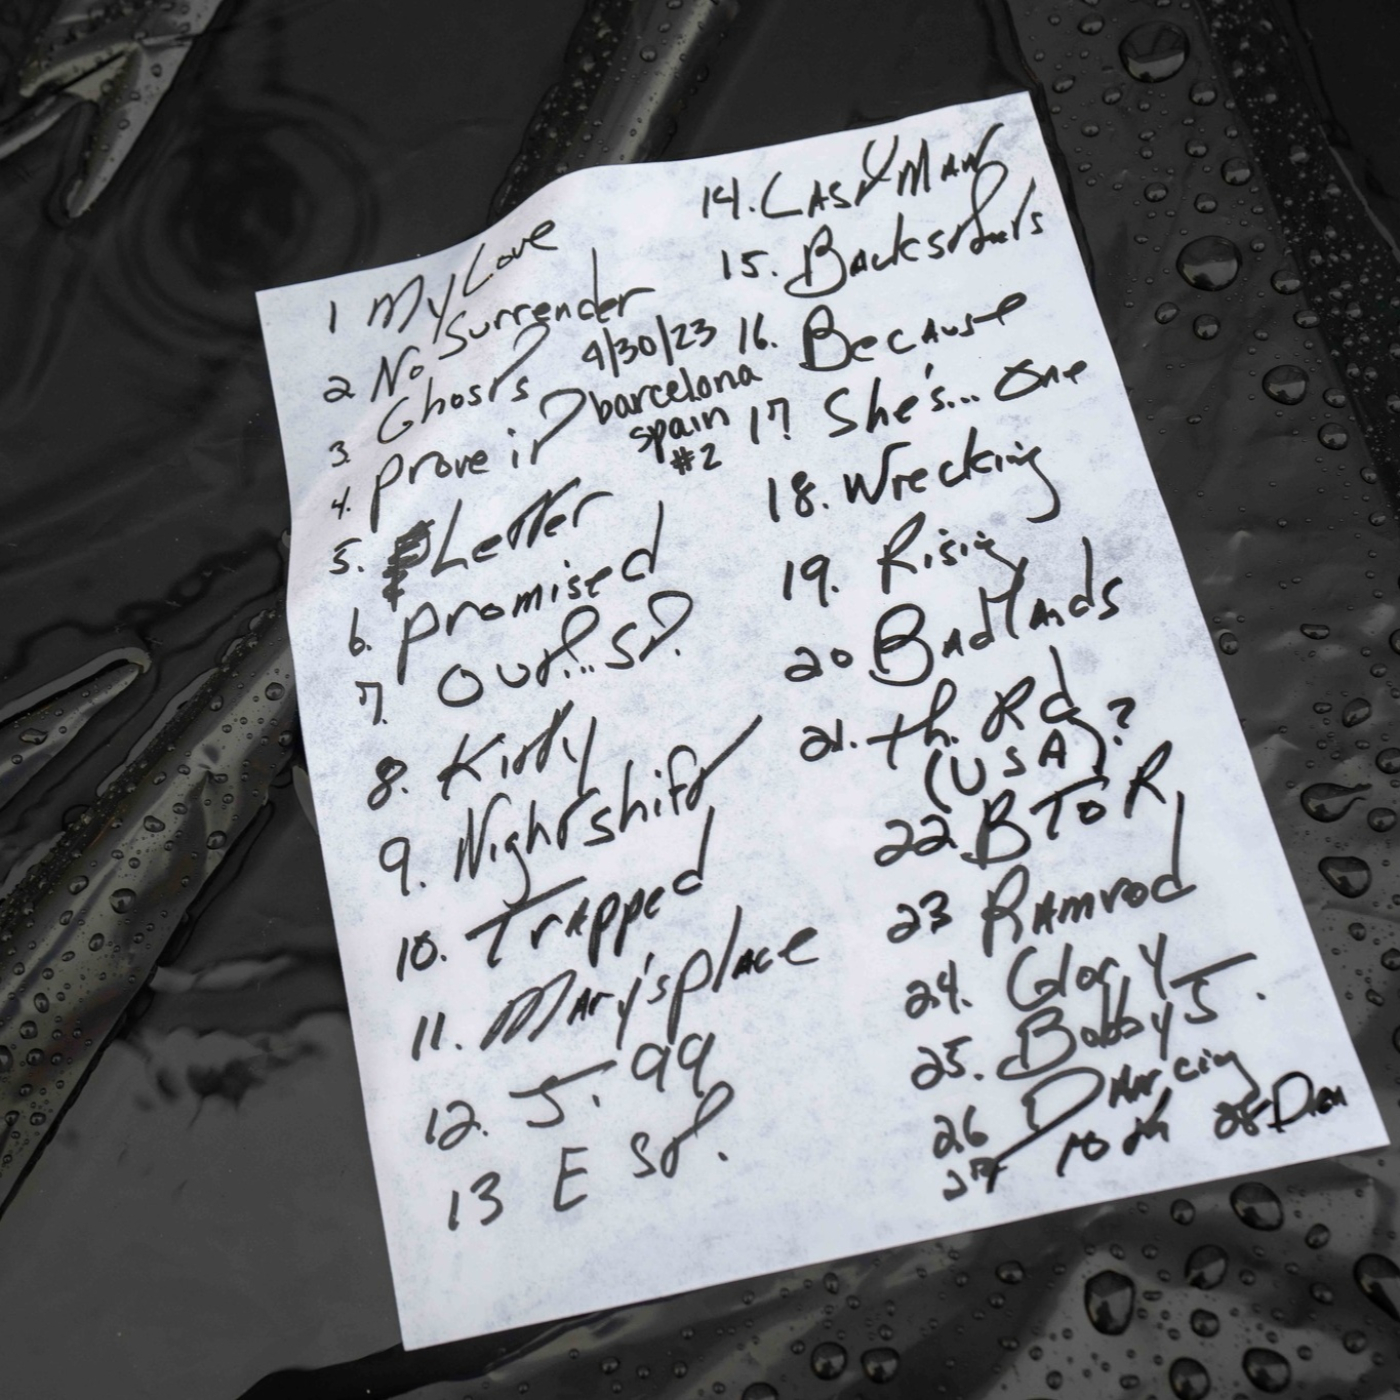 1 My Love
2 No Surrender
3. Ghosts
4. prove it
5. Letter
6. promised
7. Out...St.
8. Kitty
9. Nightshift
10. Trapped
11. Mary's place
12. J. 99
13 E St.
4/30/23
barcelona
spain
#2
14. Last Man
15. Backstreets
16. Because
17. She's... One
18. Wrecking
19. Rising
20. Badlands
21. th. Rd
(USA)?
22. BTOR
23 Ramrod
24. Glory
25. Bobby J.
26 Dancing
27 10th 28 Dream